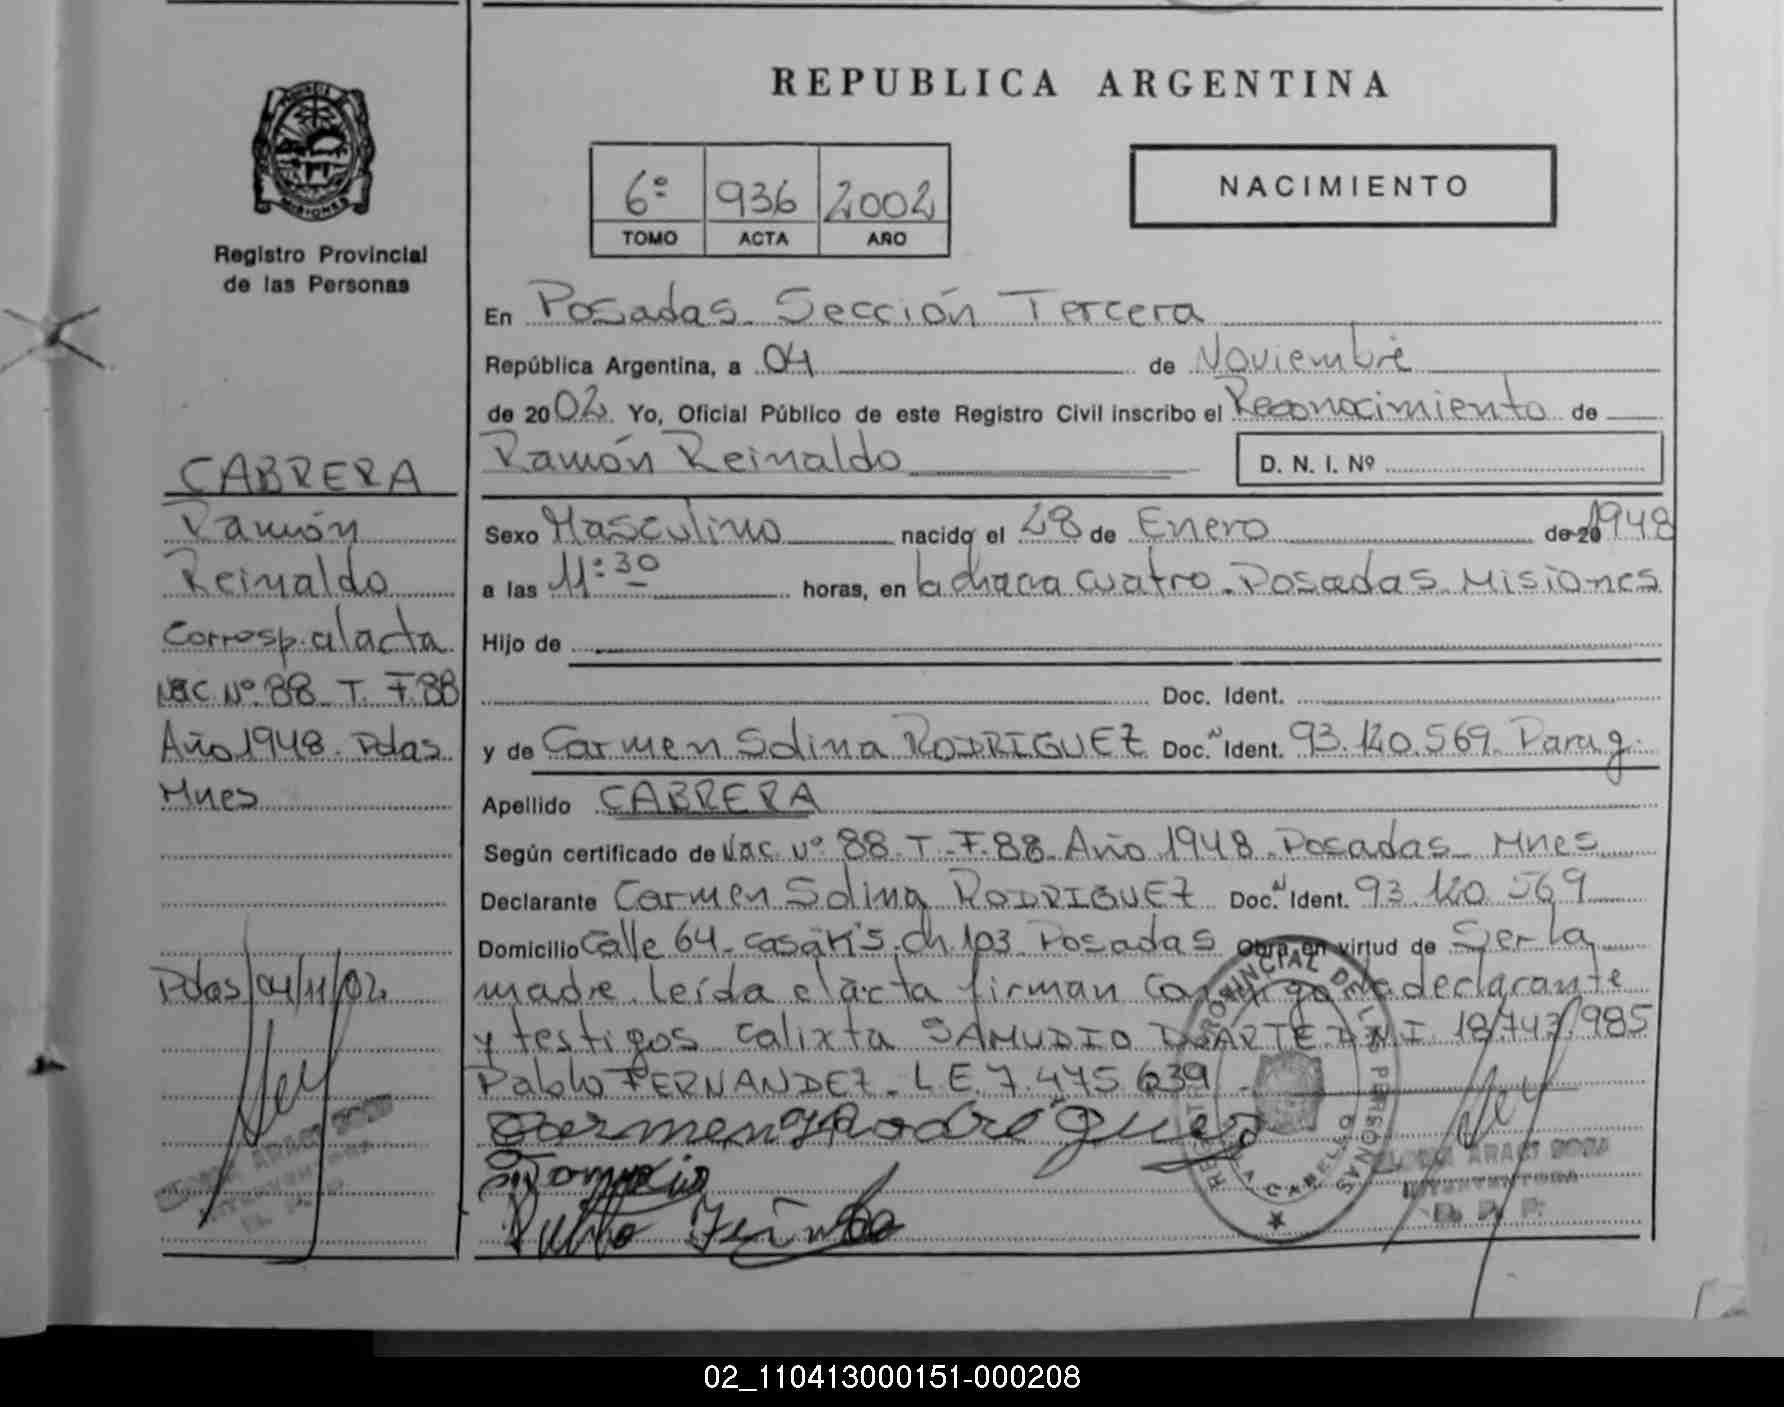 REPUBLICA ARGENTINA
6º 936 2002
TOMO ACTA AÑO
NACIMIENTO
MISIONES
Registro Provincial
de las Personas
En Posadas Sección Tercera
República Argentina, a 04 de Noviembre
de 2002. Yo, Oficial Público de este Registro Civil inscribo el Reconocimiento de
Ramón Reinaldo
D. N. I. Nº
Sexo Masculino nacido el 28 de Enero de 20 1948
a las 11:30 horas, en la chacra cuatro. Posadas Misiones
Hijo de
Doc. Ident.
y de Carmen Solina RODRIGUEZ Doc. N Ident. 93.120.569 Parag.
Apellido CABRERA
Según certificado de Nac. Nº 88 T. F. 88 Año 1948 Posadas Mnes
Declarante Carmen Solina RODRIGUEZ Doc. N Ident. 93.120.569
Domicilio Calle 64 casa Ch. 103 Posadas Obra en virtud de Ser la
madre leída el acta firman declarante
y testigos Calixta SAMUDIO DUARTE D.N.I. 18.747.985
Pablo FERNANDEZ L.E. 7.475.639
CABRERA
Ramón
Reinaldo
Corresp. al acta
Nac Nº 88 T. F. 88
Año 1948 Pdas
Mnes
Pdas/04/11/02
02_110413000151-000208